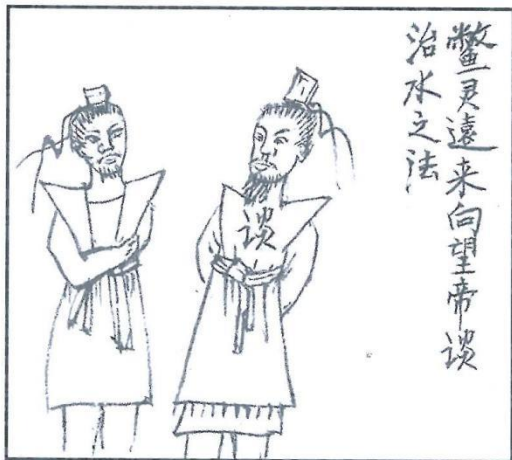 鳖灵遠来向望帝谈
治水之法
谈